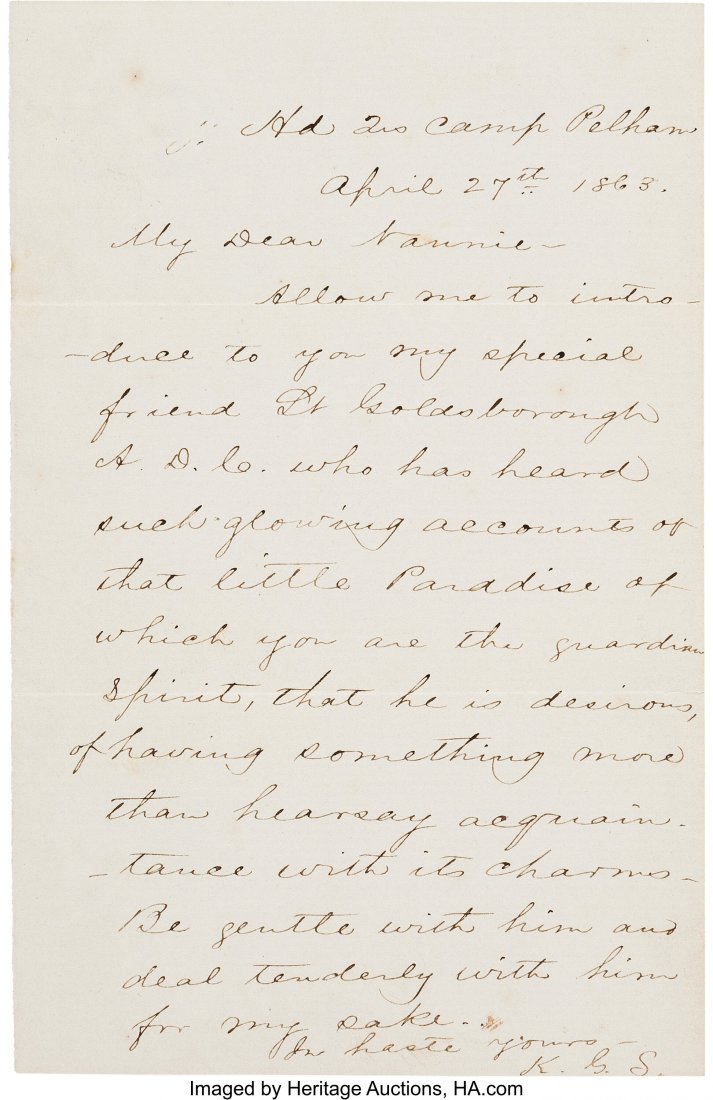 Hd Qrs Camp Pelham
April 27th 1863.
My Dear Nannie-
Allow me to intro-
-duce to you my special
friend Lt Goldsborough
A. D. C. who has heard
such glowing accounts of
that little Paradise of
which you are the guardian
Spirit, that he is desirous,
of having something more
than hearsay acquain-
-tance with its charms-
Be gentle with him and
deal tenderly with him
for my sake.
In haste yours-
K. G. S.
Imaged by Heritage Auctions, HA.com